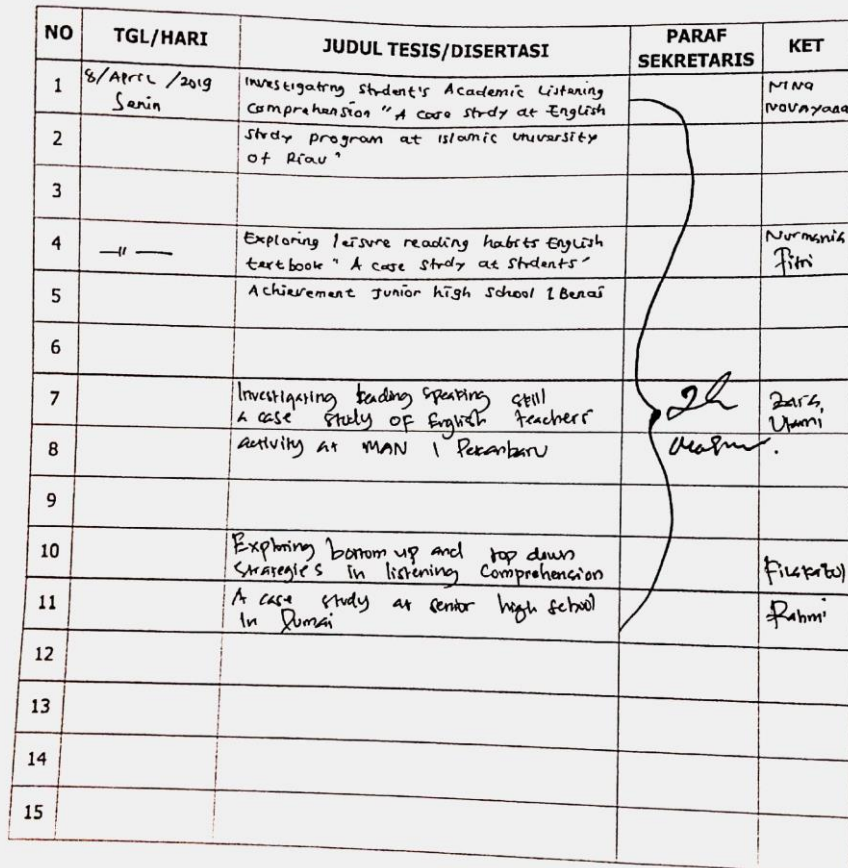 NO TGL/HARI JUDUL TESIS/DISERTASI PARAF SEKRETARIS KET
1 8/April/2019 Investigating student's Academic Listening Nina
Senin Comprehension "A case study at English Novayana
2 study program at Islamic University
of Riau"
3
4 —〃— Exploring leisure reading habits English Nurmania
textbook "A case study at students' Fitri
5 Achievement Junior high school 1 Benai
6
7 Investigating speaking skill Zara,
a case study of English teachers Utami
8 activity at MAN 1 Pekanbaru
9
10 Exploring bottom up and top down
strategies in listening comprehension
11 A case study at senior high school Rahmi
in Dumai
12
13
14
15